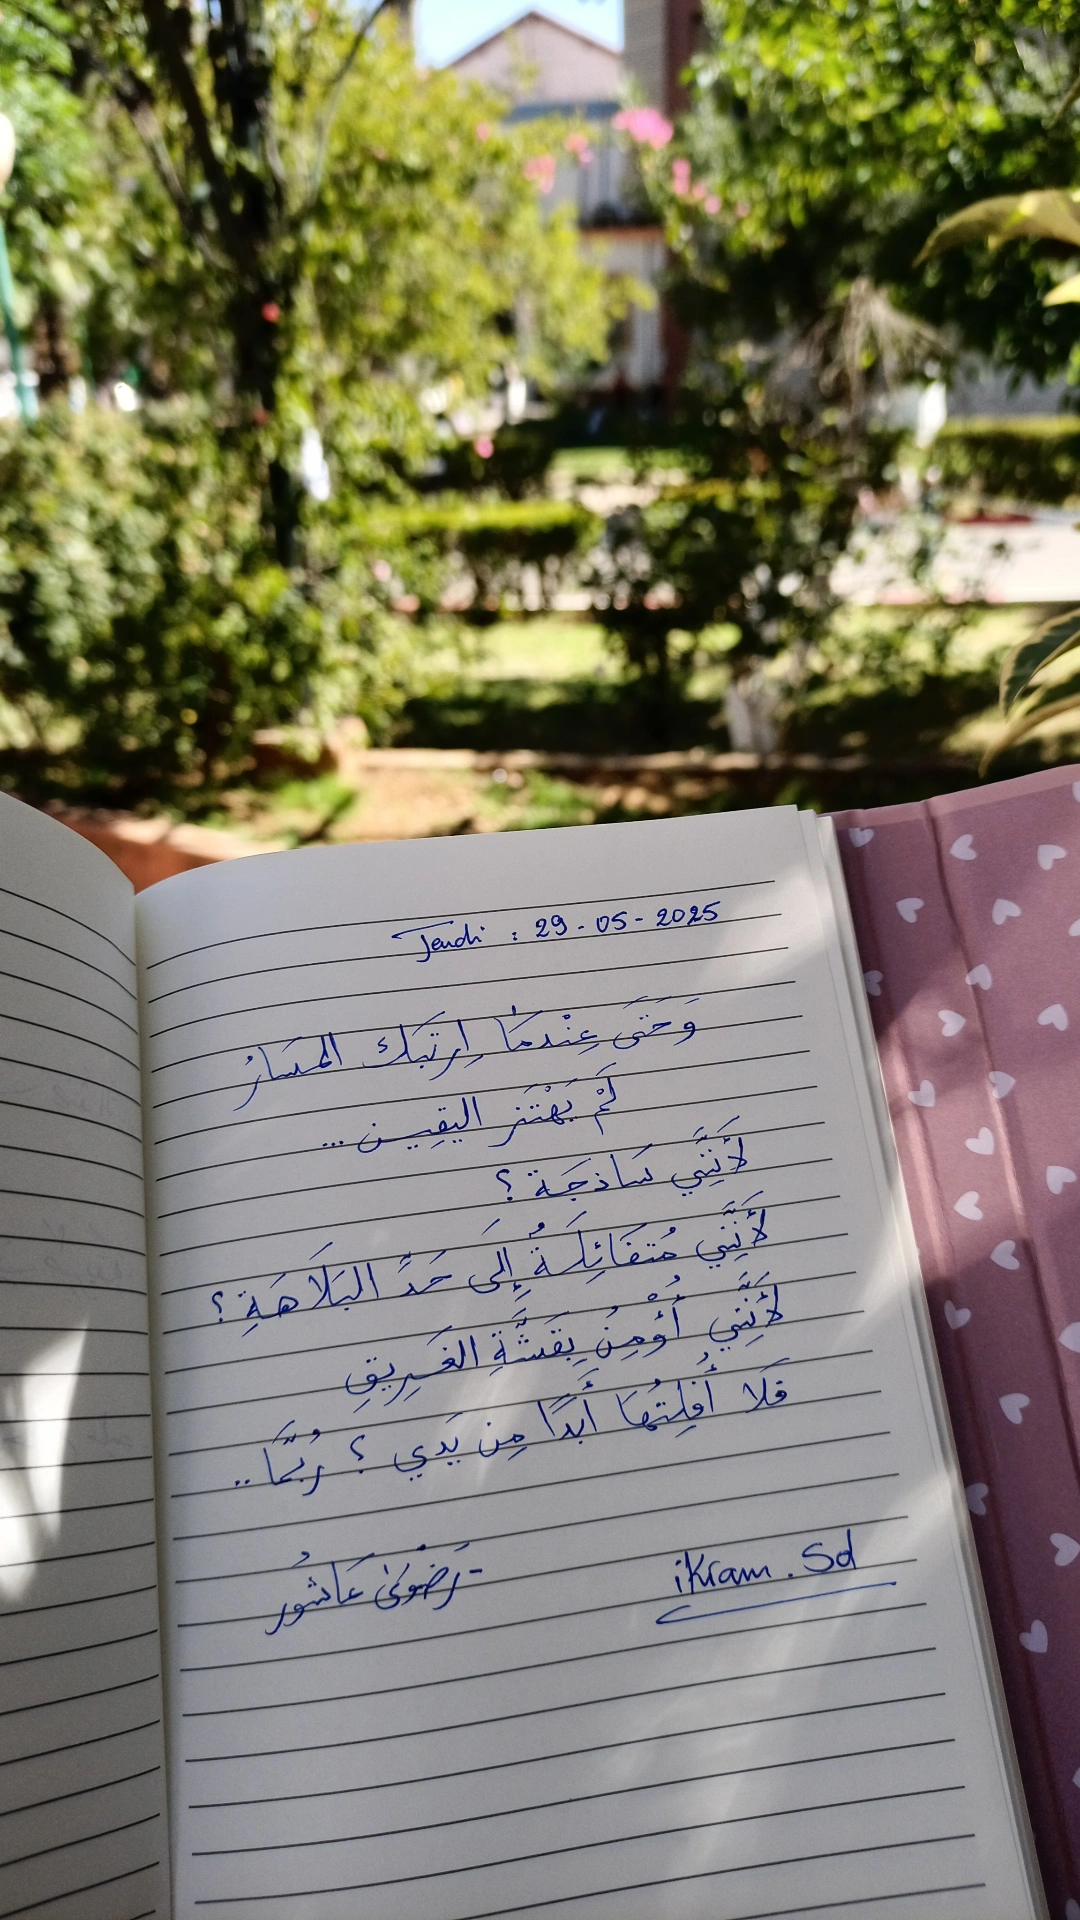 Jeudi : 29-05-2025
وَحَتَى عِنْدمَا اِرتَبَك المسَارُ
لَمْ يَهْتَز اليقِين ...
لأَنَّنِي سَاذجَة ؟
لأَنَّنِي مُتفَائِلَةُ إِلَى حَدً البَلَاهَةِ ؟
لأَنَّنِي أُؤْمِنُ بِقَشَّةِ الغَرِيقِ
فَلا أُفلِتُهَا أَبَدًا مِن يَدي ؟ رُبَّمَا ..
ikram. Sd
- رَضْوَىٰ عَاشُور